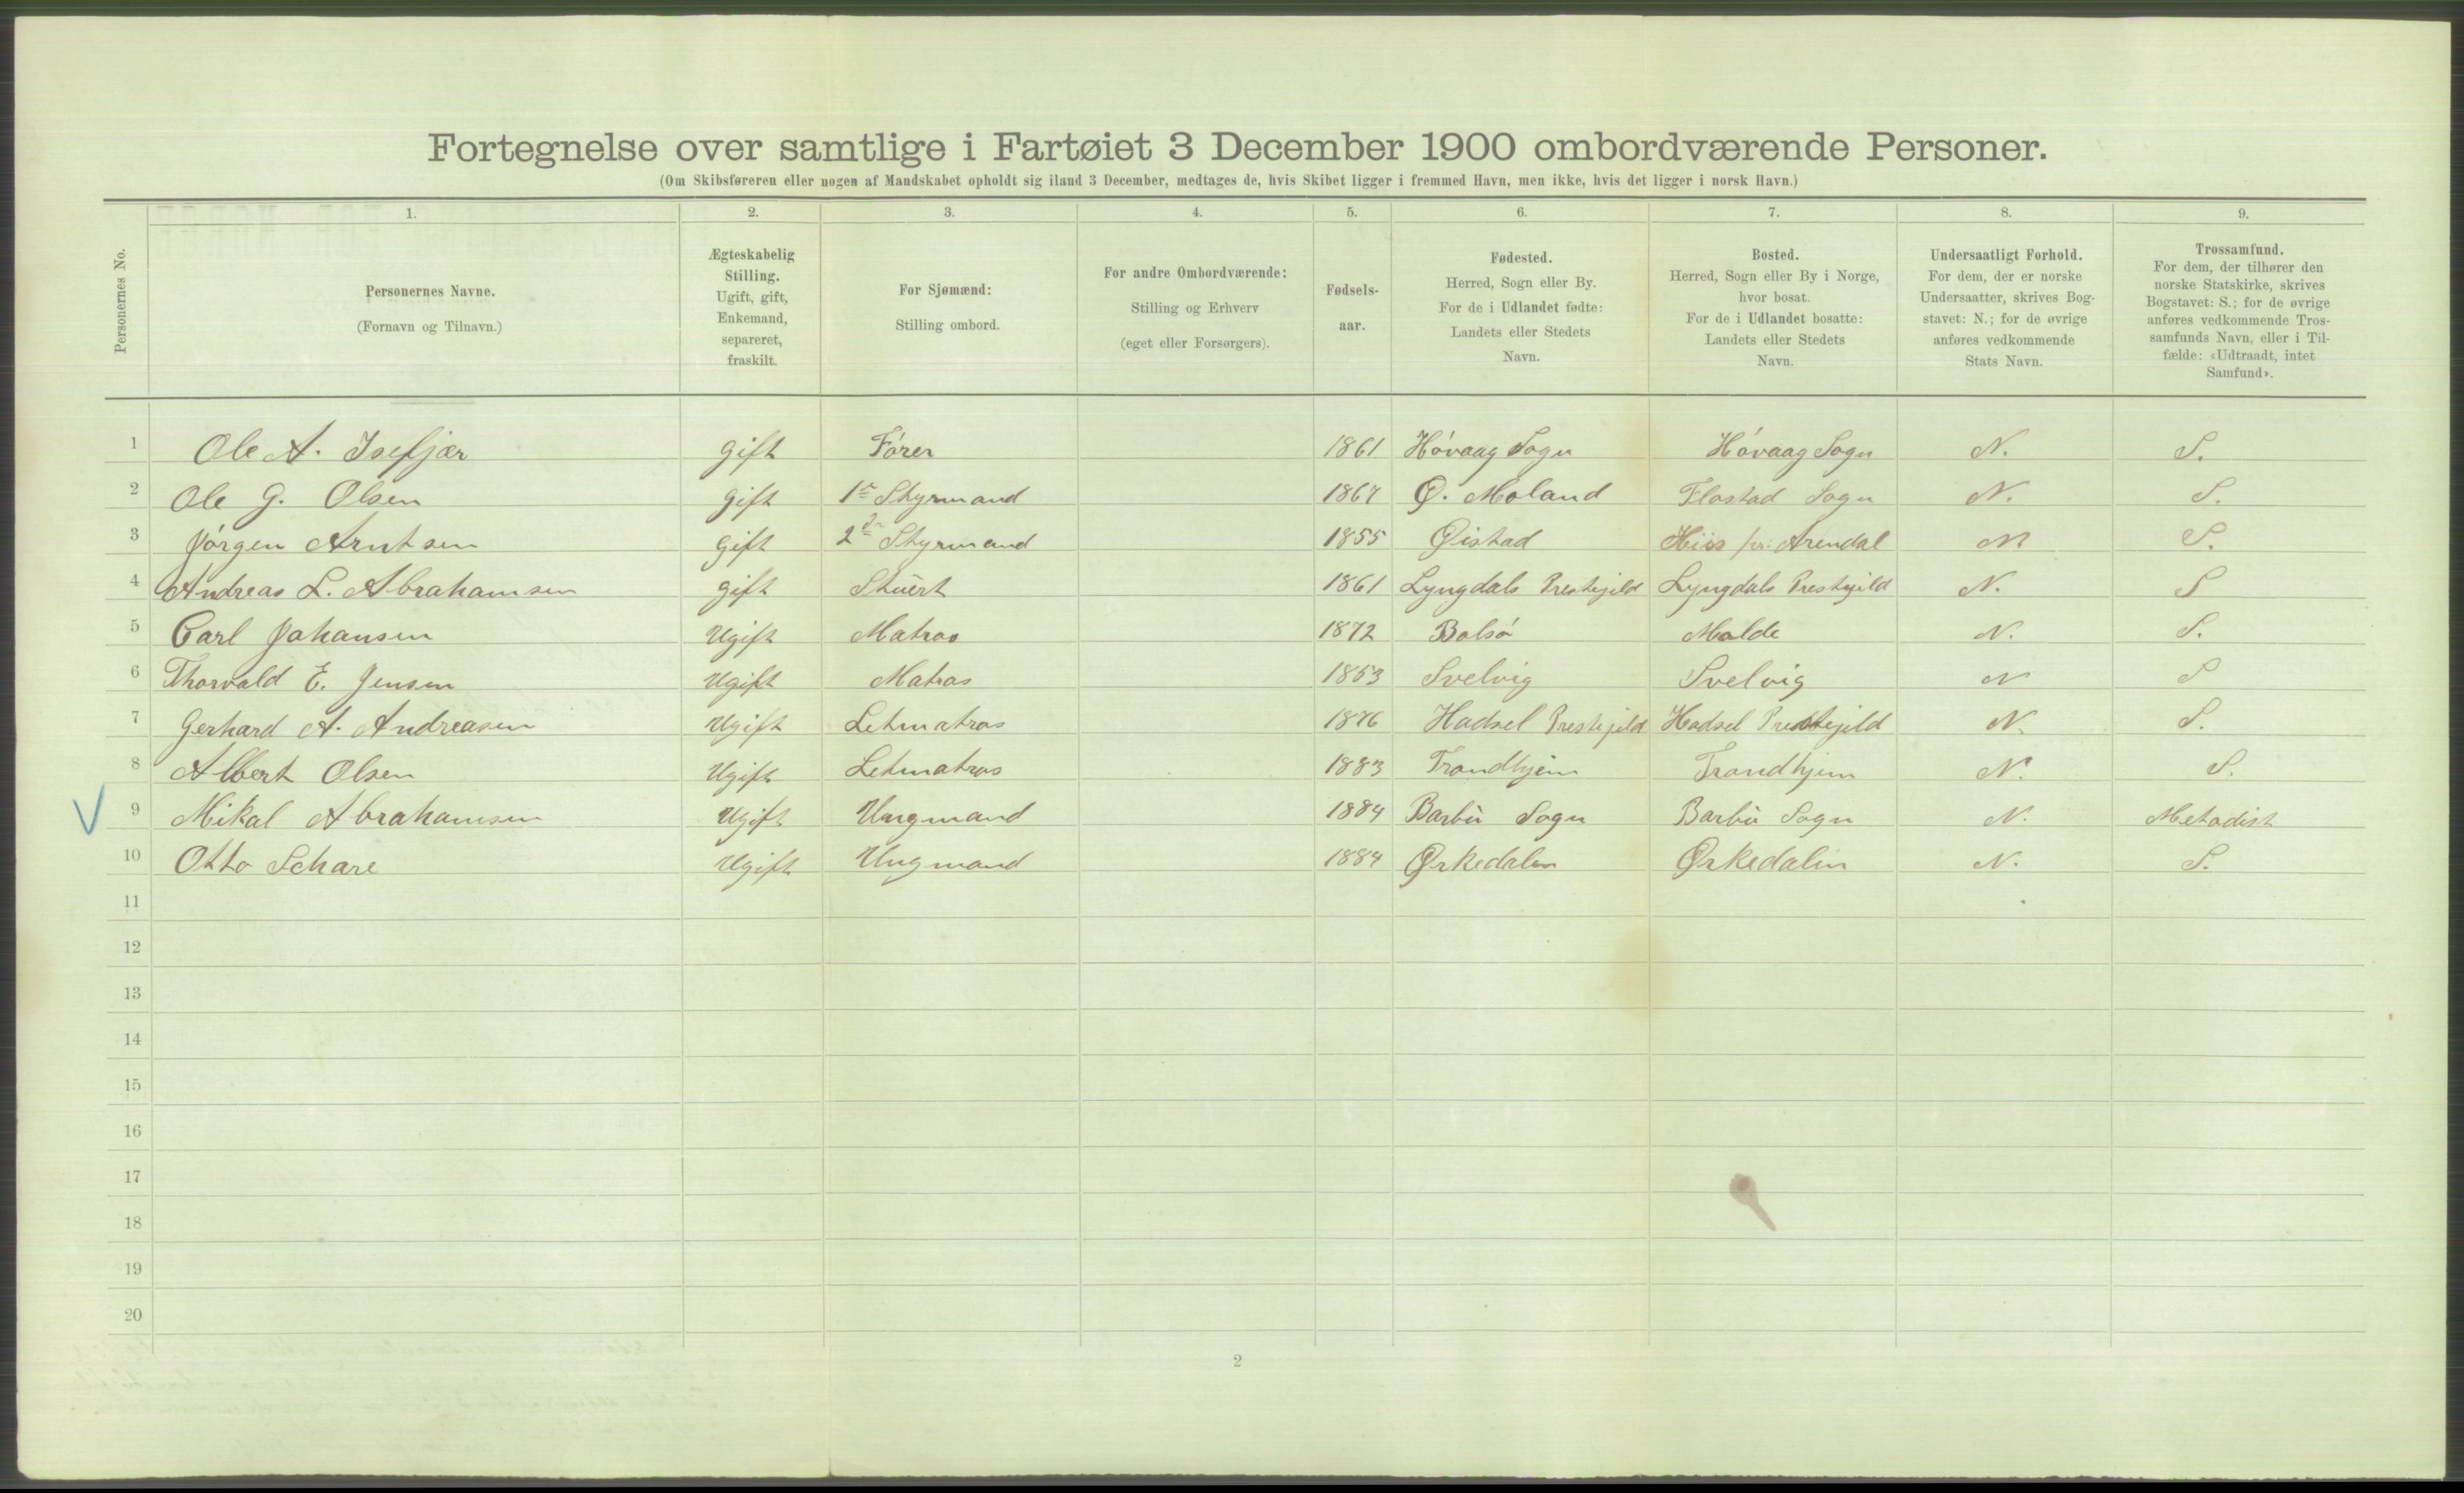 Fortegnelse over samtlige i Fartøiet 3 December 1900 ombordværende Personer.
(Om Skibsføreren eller nogen af Mandskabet opholdt sig iland 3 December, medtages de, hvis Skibet ligger i fremmed Havn, men ikke, hvis det ligger i norsk Havn.)
Personernes No.
1.
Personernes Navne.
(Fornavn og Tilnavn.)
2.
Ægteskabelig
Stilling.
Ugift, gift,
Enkemand,
separeret,
fraskilt.
3.
For Sjømænd:
Stilling ombord.
4.
For andre Ombordværende:
Stilling og Erhverv
(eget eller Forsørgers).
5.
Fødsels-
aar.
6.
Fødested.
Herred, Sogn eller By.
For de i Udlandet fødte:
Landets eller Stedets
Navn.
7.
Bosted.
Herred, Sogn eller By i Norge,
hvor bosat.
For de i Udlandet bosatte:
Landets eller Stedets
Navn.
8.
Undersaatligt Forhold.
For dem, der er norske
Undersaatter, skrives Bog-
stavet: N.; for de øvrige
anføres vedkommende
Stats Navn.
9.
Trossamfund.
For dem, der tilhører den
norske Statskirke, skrives
Bogstavet: S.; for de øvrige
anføres vedkommende Tros-
samfunds Navn, eller i Til-
fælde: «Udtraadt, intet
Samfund».
1 Ole A. Isefjær gift Fórer 1861 Hóvaag Sogn Hóvaag Sogn N. S.
2 Ole G. Olsen gift 1ste Styrmand 1867 Ø. Moland Flostad Sogn N. S.
3 Jórgen Arntsen Gift 2den Styrmand 1855 Øistad Hiis pr: Arendal N S.
4 Andreas L. Abrahamsen gift Stuert 1861 Lyngdals Prestejild Lyngdals Prestejild N. S
5 Carl Johansen Ugift Matros 1872 Bolsó Molde N. S.
6 Thorvald E. Jensen Ugift Matros 1853 Svelvig Svelvig N S
7 Gerhard A. Andreasen Ugift Letmatros 1876 Hadsel Prestejild Hadsel Prestejild N. S.
8 Albert Olsen Ugift Letmatros 1883 Trondhjem Trondhjem N. S.
9 Mikal Abrahamsen Ugift Ungmand 1884 Barbu Sogn Barbu Sogn N. Metodist
10 Otto Schare Ugift Ungmand 1884 Ørkedalen Ørkedalen N. S.
11
12
13
14
15
16
17
18
19
20
2